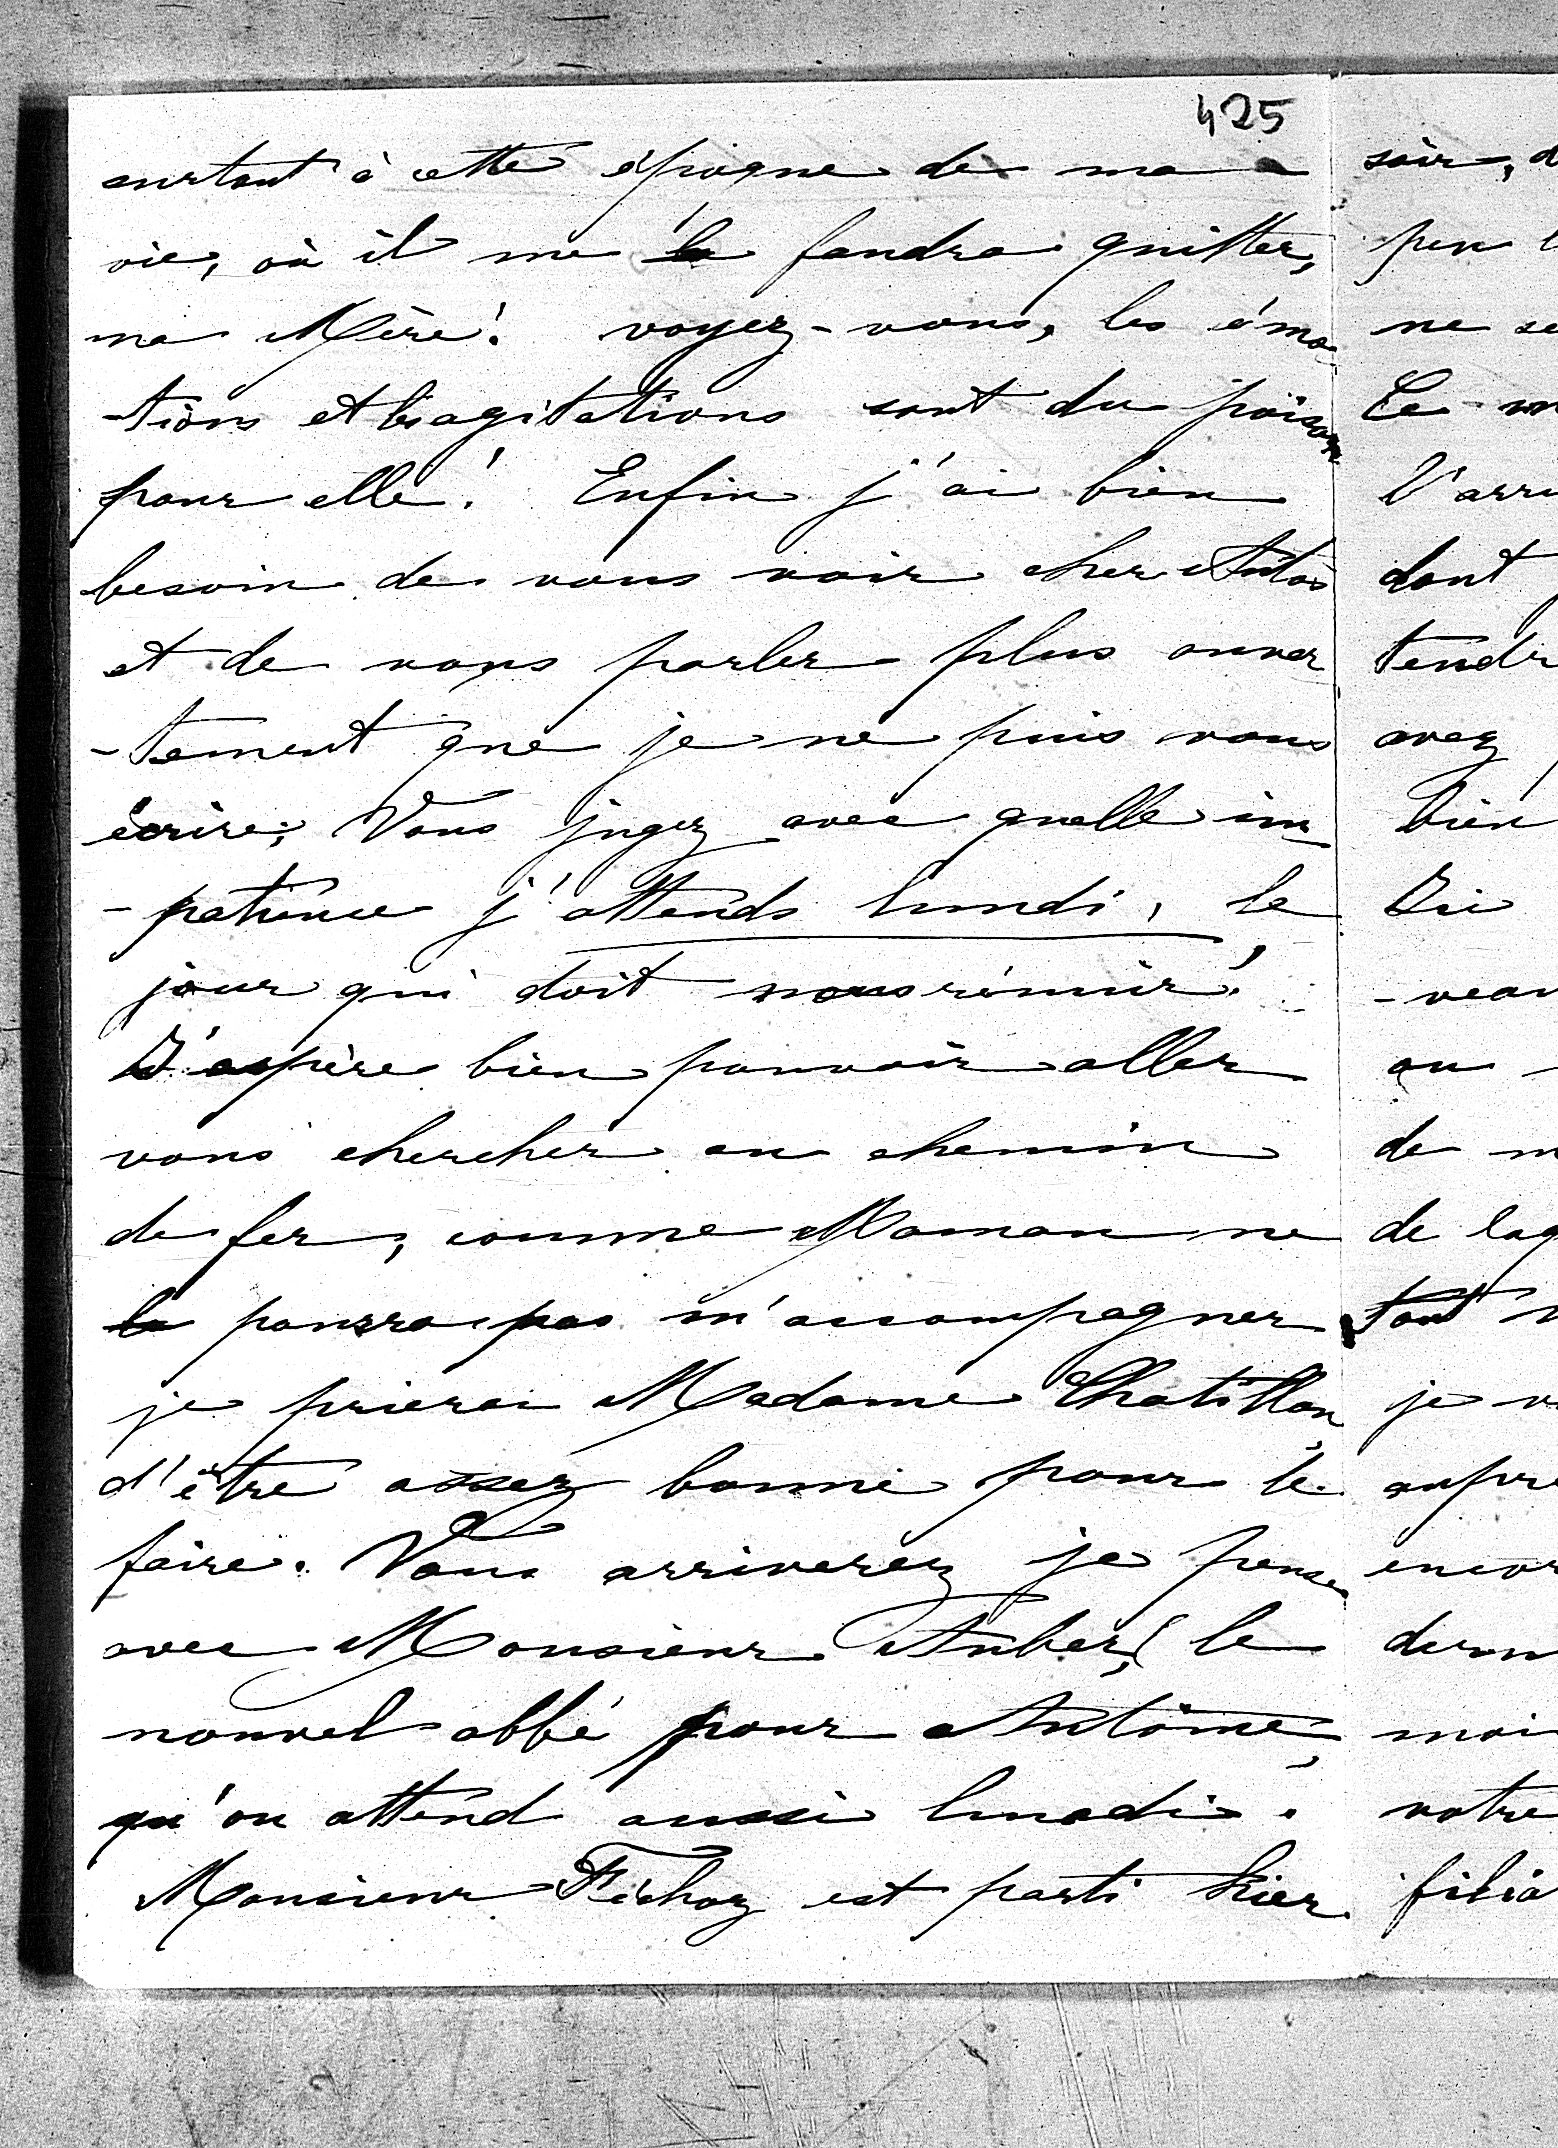 425
surtout à cette époque de ma
vie, où il me la faudra quitter,
ma Mère! voyez-vous, les émo
-tions et les agitations sont du poison
pour elle! Enfin j'ai bien
besoin de vous voir cher Antos
et de vous parler plus ouver
-tement que je ne puis vous
écrire; Vous jugez avec quelle im
-patience j'attends lundi, le
jour qui doit nous réunir!
J'espère bien pouvoir aller
vous chercher au chemin
de fer, comme Maman ne
le pourra pas m'accompagner
je prierai Madame Chatillon,
d'être assez bonne pour le
faire. Vous arriverez je pense
avec Monsieur Auber, le
nouvel abbé pour Antoine,
qu'on attend aussi lundi.
Monsieur Féchoz est parti hier
soir, d
peu l
ne se
Ce
l'arri
dont
tendr
avez
bien
Zii
-veau
au
de m
de laq
tout
je v
aupre
encor
dern
moi
votre
filia